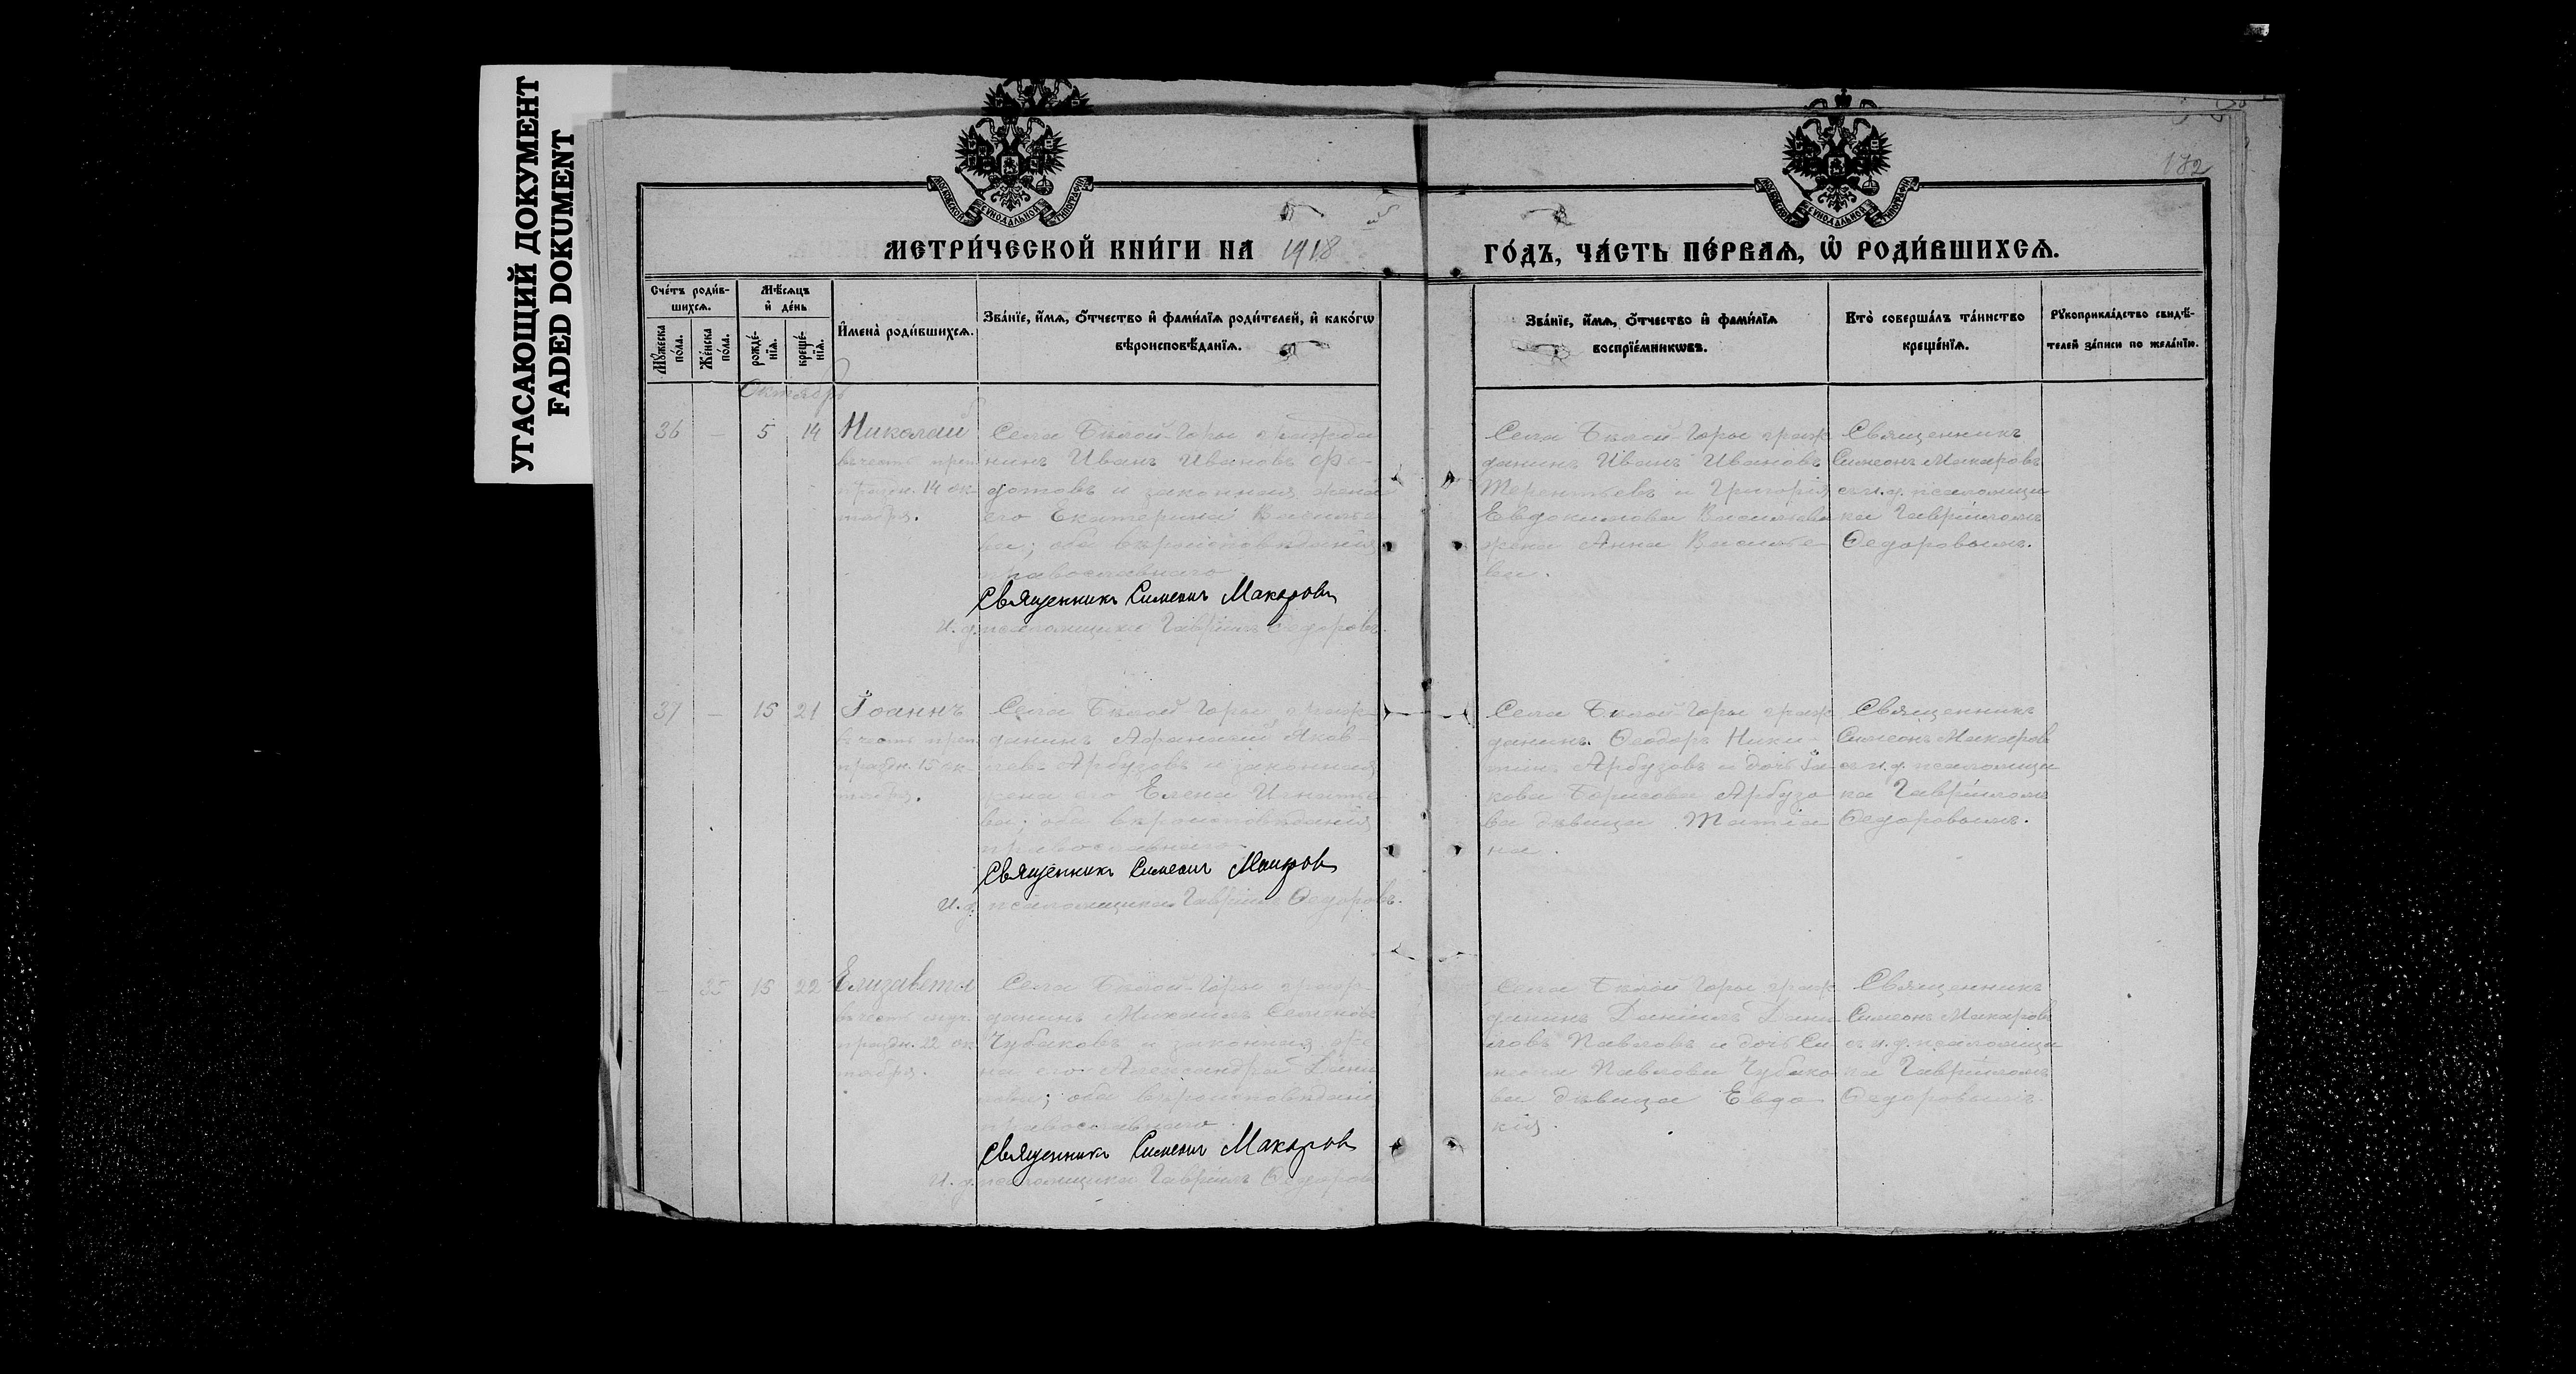 УГАСАЮЩИЙ ДОКУМЕНТ
FADED DOKUMENT
172
МОСКОВСКОЙ СѴНОДАЛЬНОЙ ТИПОГРАФІИ
МОСКОВСКОЙ СѴНОДАЛЬНОЙ ТИПОГРАФІИ
МЕТРИ́ЧЕСКОЙ КНИ́ГИ НА 1918
ГО́ДЪ, ЧА́СТЬ ПЕ́РВАѦ, Ѡ҆ РОДИ́ВШИХСѦ.
Сче́тъ роди́в-
шихсѧ.
Мꙋ́жеска
по́ла.
Же́нска
по́ла.
Мѣ́сѧцъ
и҆ де́нь
рожде́-
нїѧ.
креще́-
нїѧ.
И҆мена̀ роди́вшихсѧ.
Зва́нїе, и҆́мѧ, ѻ҆́тчество и҆ фами́лїѧ роди́телей, и҆ како́гѡ
вѣроисповѣ́данїѧ.
Зва́нїе, и҆́мѧ, ѻ҆́тчество и҆ фами́лїѧ
воспрїе́мникѡвъ.
Кто̀ соверша́лъ та́инство
креще́нїѧ.
Рꙋкоприкла́дство свидѣ́-
телей за́писи по жела́нїю.
Октябрь
36 — 5 14 Николай
въ честь преп.
праздн. 14 ок-
тября.
Села Бѣлой-Горы гражда
нинъ Иванъ Ивановъ Фе-
дотовъ и законная жена
его Екатерина Василье
ва; оба вѣроисповѣданія
православнаго.
Священникъ Симеонъ Макаровъ
И. д. псаломщика Гавріилъ Ѳедоровъ.
Села Бѣлой-Горы граж
данинъ Иванъ Ивановъ
Терентьевъ и Григорія
Евдокимова Васильева
жена Анна Василье
ва.
Священникъ
Симеонъ Макаровъ
съ и. д. псаломщи
ка Гавріиломъ
Ѳедоровымъ.
37 — 15 21 Іоаннъ
въ честь преп.
праздн. 15 ок-
тября.
Села Бѣлой Горы граж-
данинъ Афанасій Яков-
левъ Арбузовъ и законная
жена его Елена Игнатье
ва; оба вѣроисповѣданія
православнаго.
Священникъ Симеонъ Макаровъ
И. д. псаломщика Гавріилъ Ѳедоровъ.
Села Бѣлой-Горы граж
данинъ Ѳеодоръ Ники-
тинъ Арбузовъ и дочь Іа-
кова Борисова Арбузо
ва дѣвица Татіа
на.
Священникъ
Симеонъ Макаровъ
съ и. д. псаломщи
ка Гавріиломъ
Ѳедоровымъ.
— 35 15 22 Елизавета
въ честь муч.
праздн. 22 ок
тября.
Села Бѣлой-Горы граж-
данинъ Михаилъ Семеновъ
Чубаковъ и законная же
на его Александра Дани
лова; оба вѣроисповѣданія
православнаго.
Священникъ Симеонъ Макаровъ
И. д. псаломщика Гавріилъ Ѳедоровъ
Села Бѣлой Горы граж
данинъ Даніилъ Дани
ловъ Павловъ и дочь Си
меона Павлова Чубако
ва дѣвица Евдо
кія.
Священникъ
Симеонъ Макаровъ
съ и. д. псаломщи
ка Гавріиломъ
Ѳедоровымъ.